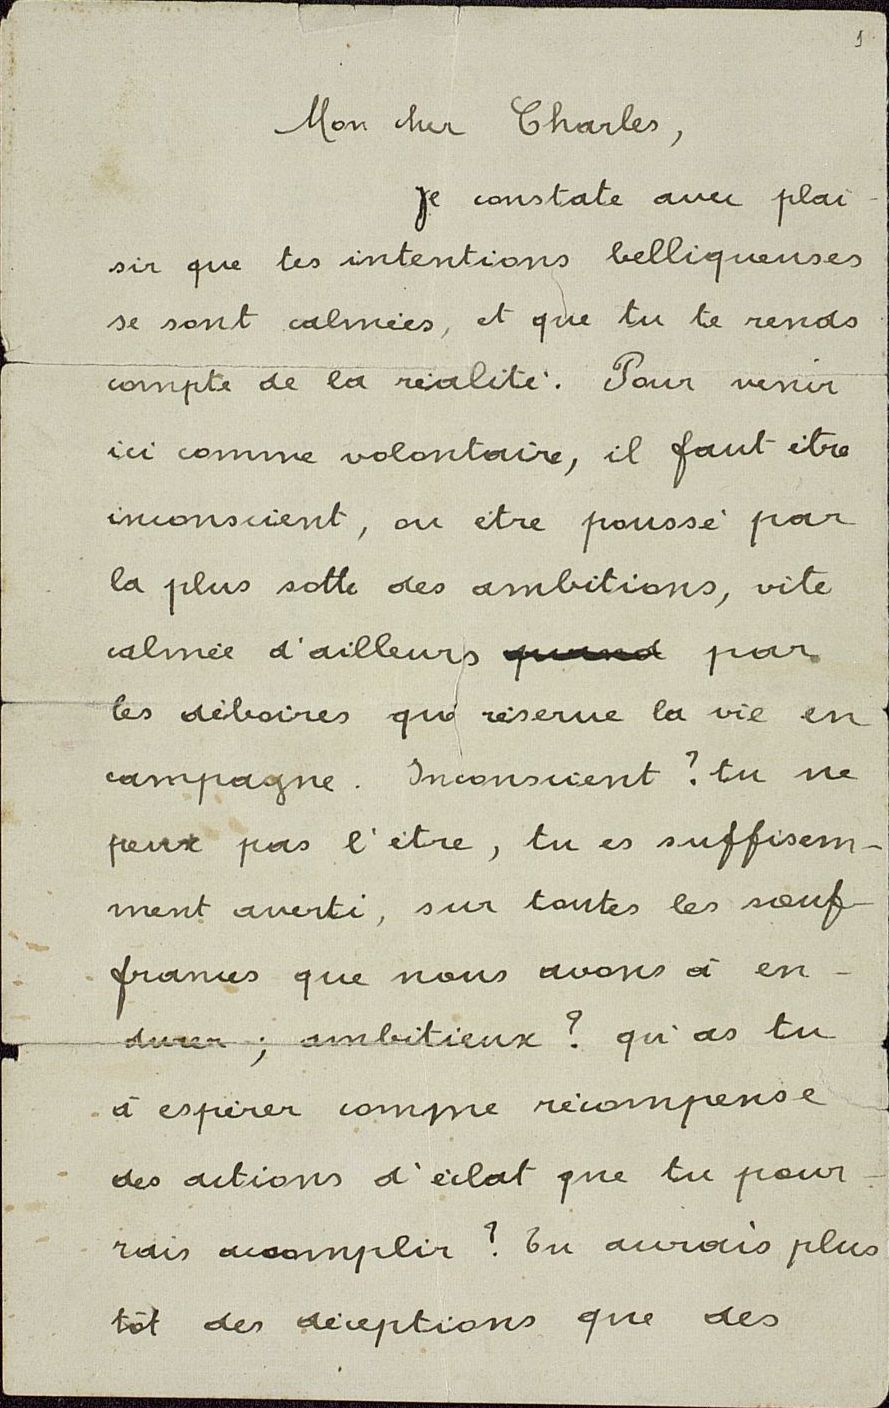 1
Mon cher Charles,
je constate avec plai-
sir que tes intentions belliqueuses
se sont calmées, et que tu te rends
compte de la réalité. Pour venir
ici comme volontaire, il faut être
inconscient, ou être poussé par
la plus sotte des ambitions, vite
calmée d'ailleurs quand par
les déboires que réserve la vie en
campagne. Inconscient ? tu ne
peux pas l'être, tu es suffisem-
ment averti, sur toutes les souf-
frances que nous avons à en-
durer ; ambitieux ? qu'as tu
à espérer comme récompense
des actions d'éclat que tu pour-
rais accomplir ? Tu aurais plus
tôt des déceptions que des